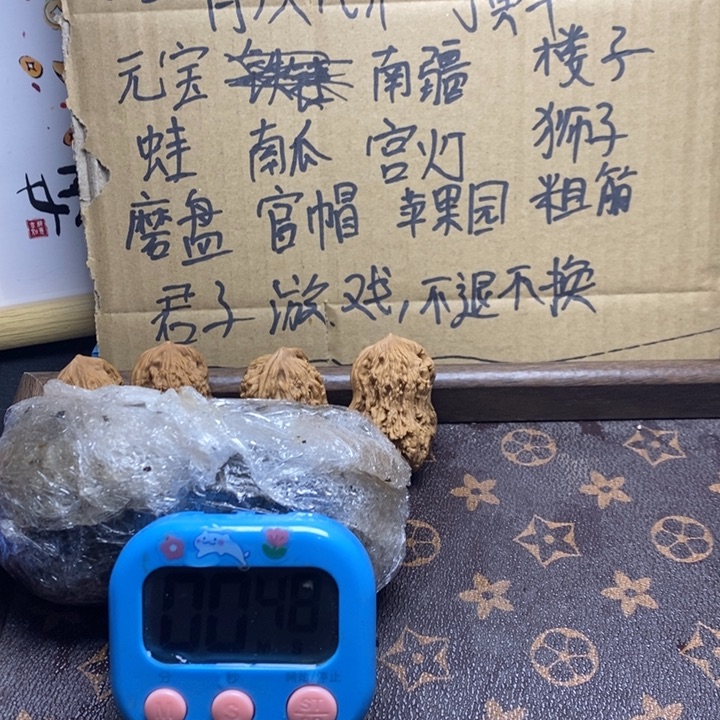 元宝 南疆 楼子
蛙 南瓜 宫灯 狮子
磨盘 官帽 苹果园 粗筋
君子游戏,不退不换
00 48
M S
分 秒 开始/停止
M S ST